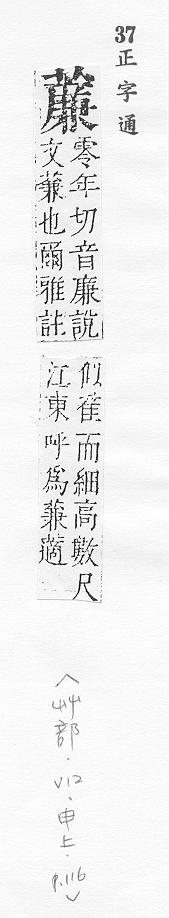 37正字通
薕
零年切音廉說
文蒹也爾雅註
似萑而細高數尺
江東呼爲蒹薖
︿艸部.V12、申上.P.116﹀